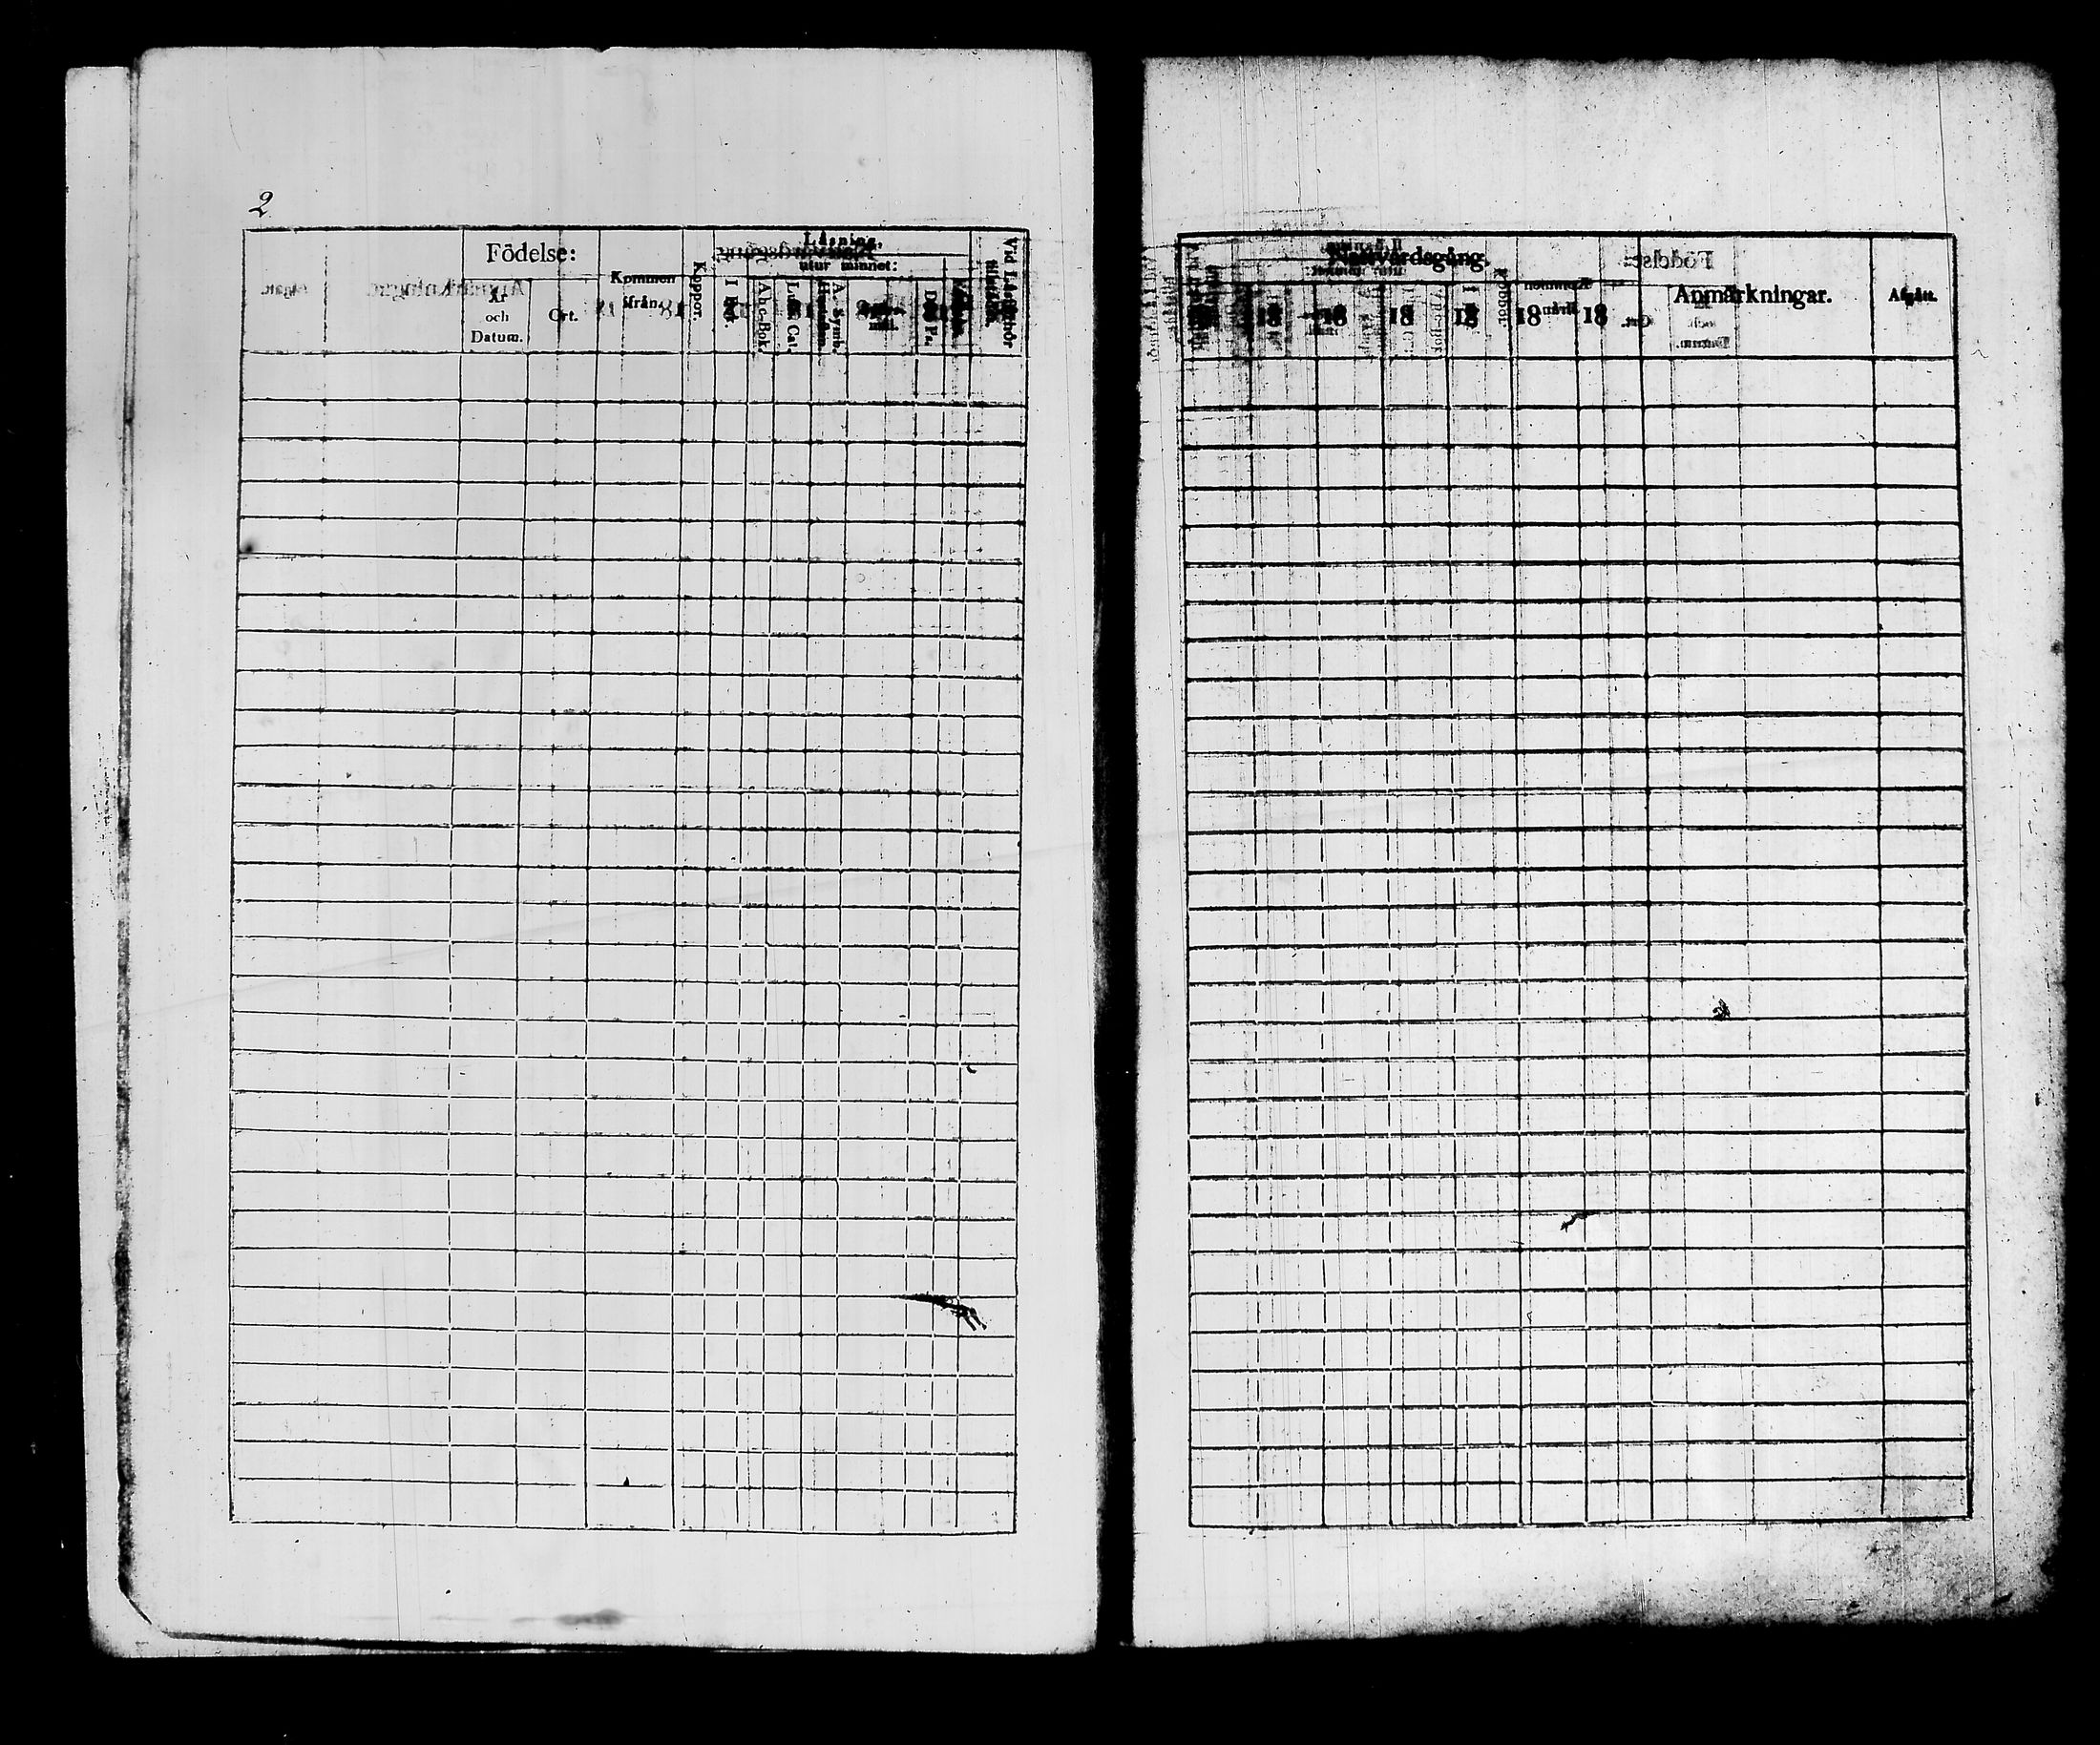 2
Födelse:
År
och
Datum.
Ort.
Kommen
ifrån.
Koppor.
Läsning,
I bok.
utur minnet:
Abc-Bok.
Luth. Cat.
Hustaflan.
A. Symb.
Dav. Ps.
Vid Läsförhör
Nattvardsgång.
18
18
18
18
18
18
Anmärkningar.
Afgått.